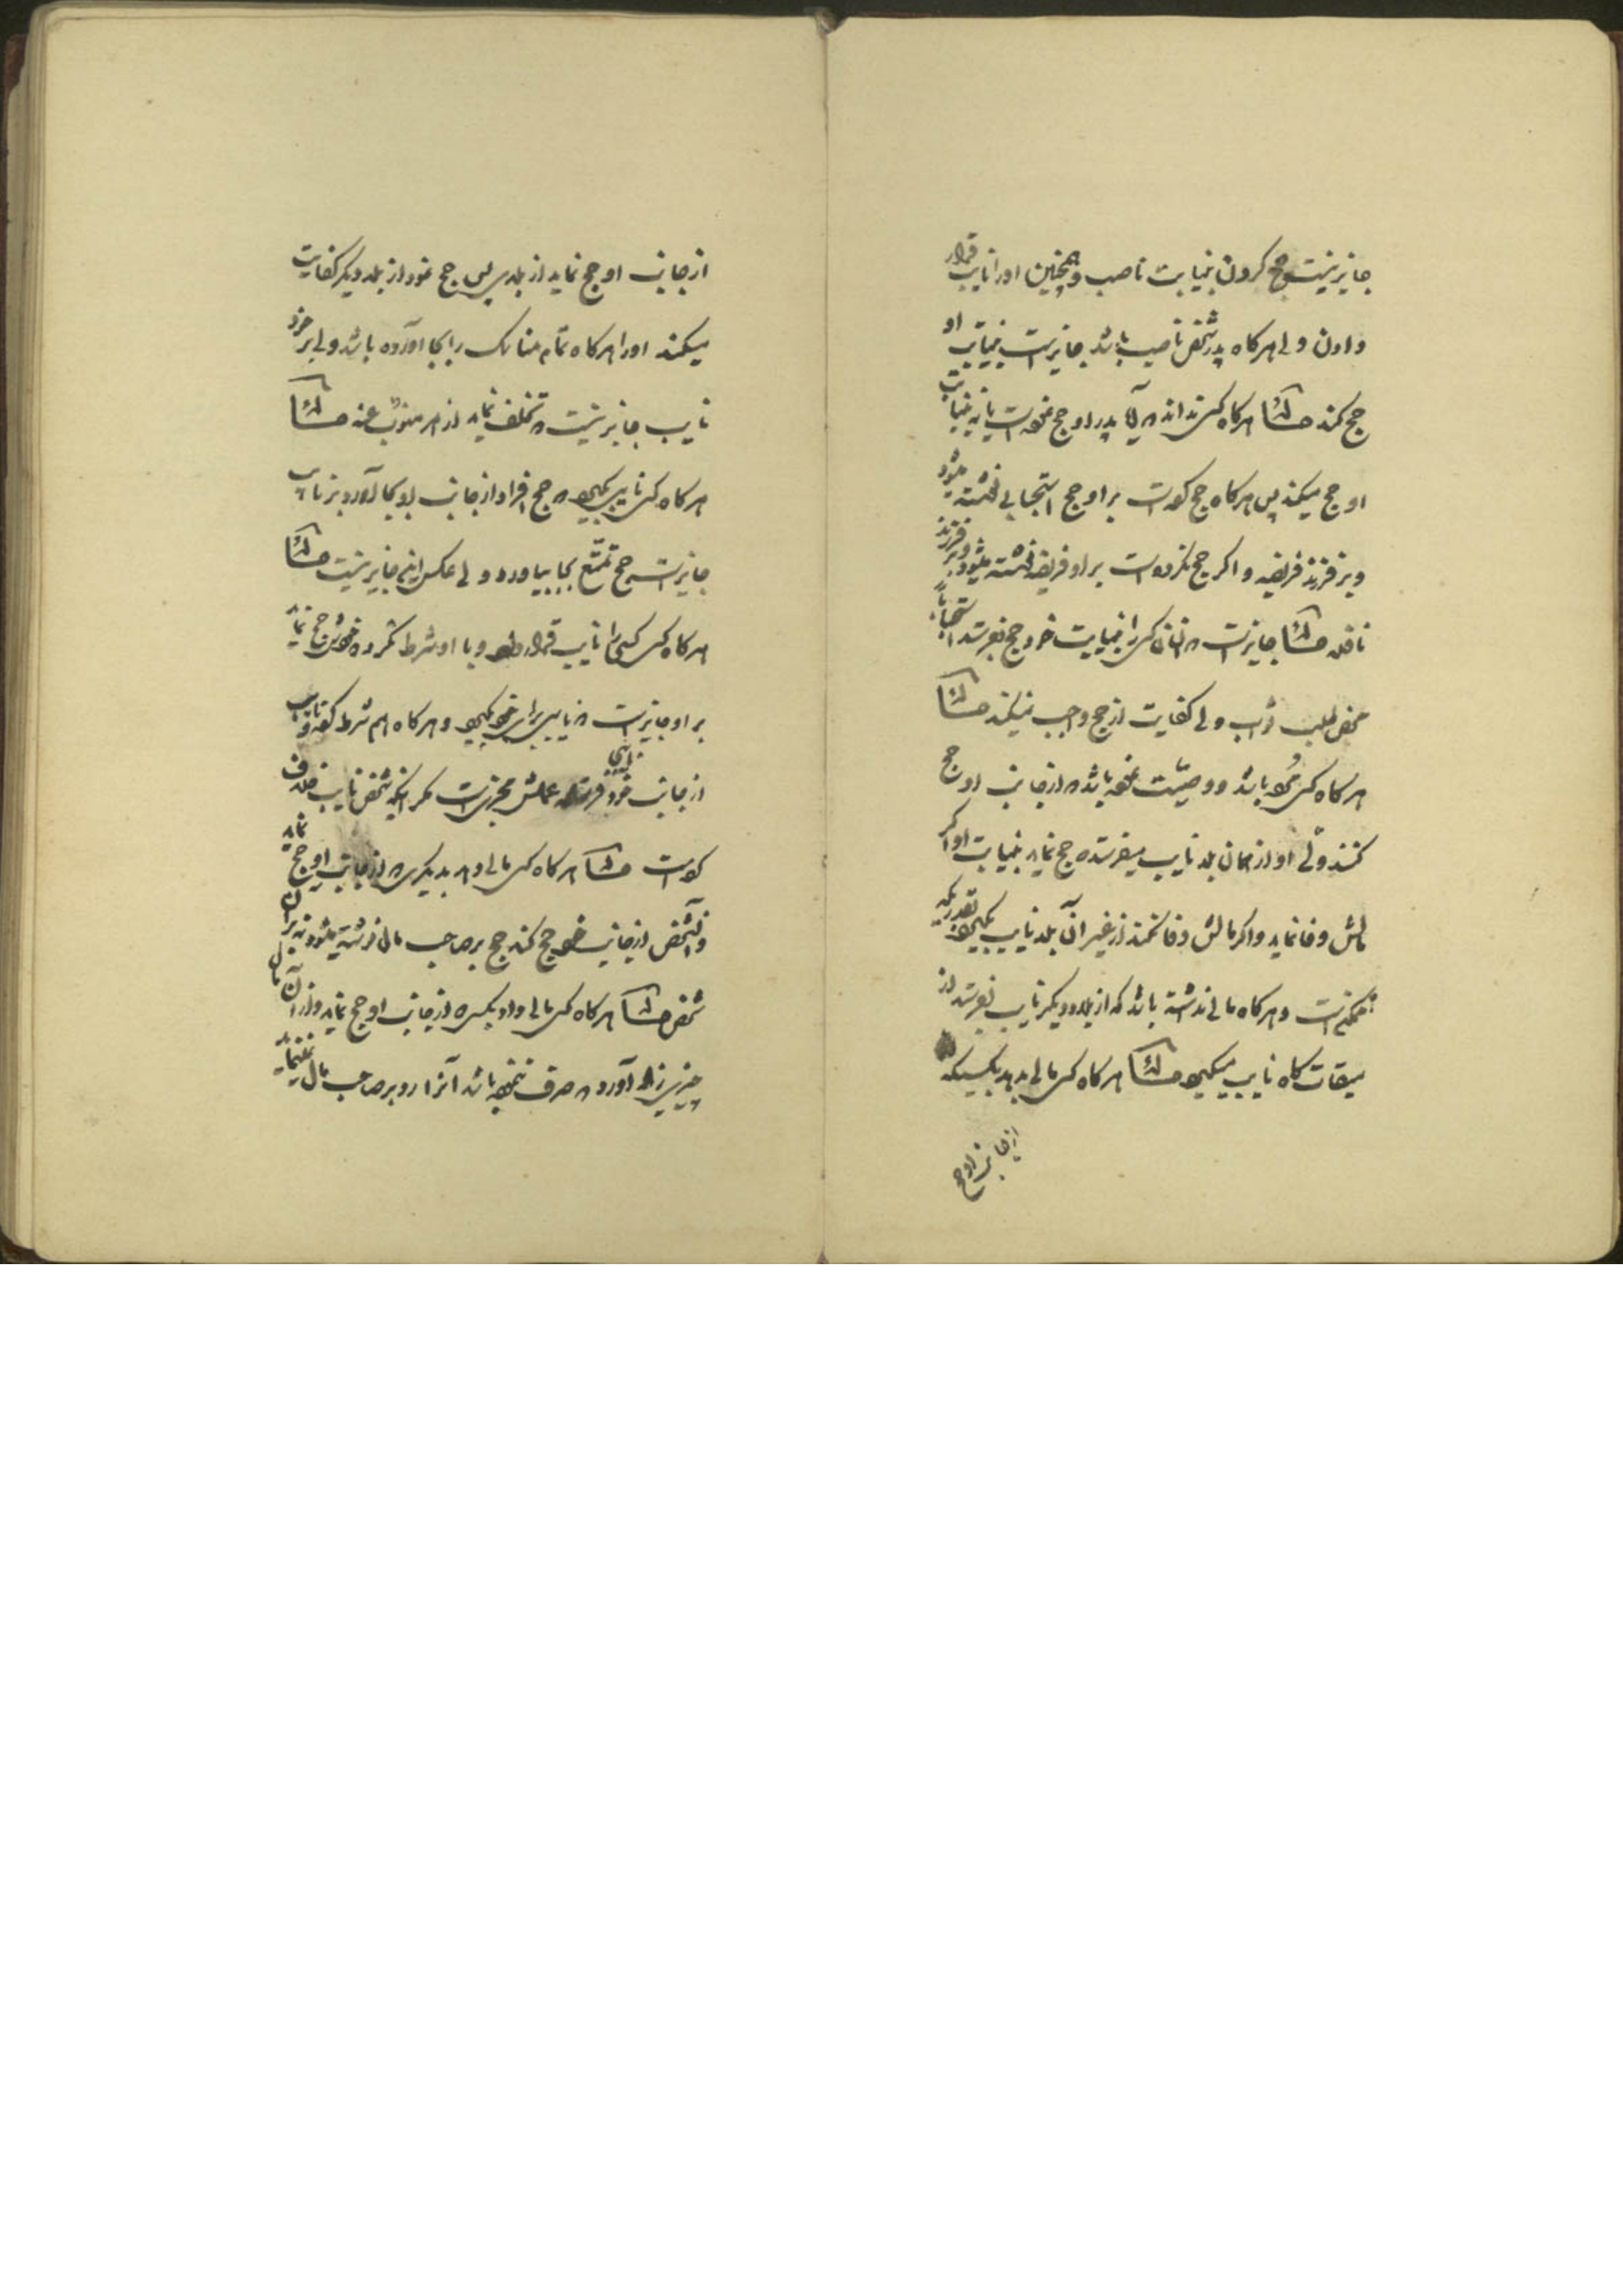 جایز نیست حج کردن بنیابت ناصب و همچنین او را نایب قرار
دادن ولی هرگاه پدر شخص ناصب باشد جایز است بنیابت او
حج کند مسئله هرگاه کسی نداند که آیا پدر او حج نموده است یا نه بنیابت
او حج میکند پس هرگاه حج کرده است بر او حج استحبابی نوشته میشود
و بر فرزند فریضه و اگر حج نکرده است بر او فریضه نوشته میشود و بر فرزند
نافله مسئله جایز است که انسان کسی را بنیابت خود حج بفرستد استحباباً
محض طلب ثواب ولی کفایت از حج واجب نمیکند مسئله
هرگاه کسی مرده باشد و وصیت نموده باشد که از جانب او حج
کنند ولی او از همان بلد نایب میفرستد که حج نماید بنیابت او اگر
مالش وفا نماید و اگر مالش وفا نکند از غیر آن بلد نایب میگیرد بقدریکه
ممکن است و هرگاه مالی نداشته باشد که از بلد دیگر نایب بفرستد از
میقات گاه نایب میگیرد مسئله هرگاه کسی مالی بدهد بکسیکه
از جانب او حج
از جانب او حج نماید از بلدی پس حج نمود از بلد دیگر کفایت
میکند او را هرگاه تمام مناسک را بجا آورده باشد ولی بر خود
نایب جایز نیست که تخلف نماید از امر منوب عنه مسئله
هرگاه کسی نایب بگیرد که حج افراد از جانب او بجا آورد بر نایب
جایز است حج تمتع بجا بیاورد ولی عکس این جایز نیست مسئله
هرگاه کسی کسی را نایب قرار داد و با او شرط نکرده خودش حج نماید
بر او جایز است که نایبی برای خود بگیرد و هرگاه هم شرط کرده و نایب
نایبی
از جانب خود فرستاد عملش مجزی است مگر اینکه شخص نایب خلاف
کرده است مسئله هرگاه کسی مالی دهد بدیگری که از جانب او حج نماید
و آنشخص از جانب خود حج کند حج بر صاحب مال نوشته میشود نه بر آن
شخص مسئله هرگاه کسی مالی داد بکسی که از جانب او حج نماید و از آن مال
چیزی زیاد آورد که صرف ننموده باشد آنرا رد بر صاحب مال نمینماید